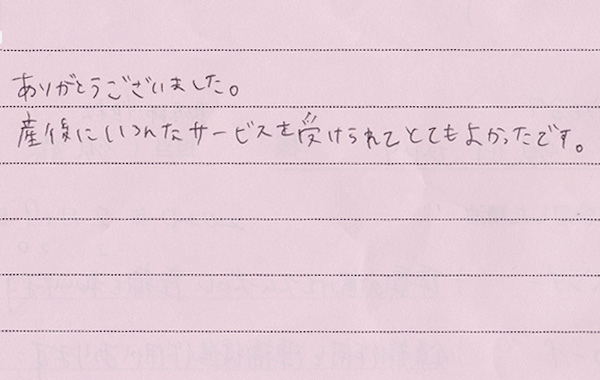 ありがとうございました。
産後にいろんなサービスを受けられてとてもよかったです。